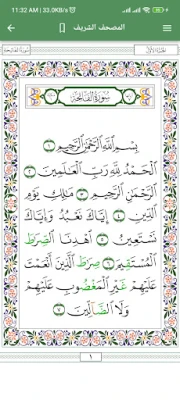 11:32 AM | 33.0KB/s
المصحف الشريف
سورة الفاتحة
الجزء الأول
سُورَةُ الْفَاتِحَةِ
بِسْمِ اللَّهِ الرَّحْمَٰنِ الرَّحِيمِ ١
الْحَمْدُ لِلَّهِ رَبِّ الْعَالَمِينَ ٢
الرَّحْمَٰنِ الرَّحِيمِ ٣ مَالِكِ يَوْمِ
الدِّينِ ٤ إِيَّاكَ نَعْبُدُ وَإِيَّاكَ
نَسْتَعِينُ ٥ اهْدِنَا الصِّرَاطَ
الْمُسْتَقِيمَ ٦ صِرَاطَ الَّذِينَ أَنْعَمْتَ
عَلَيْهِمْ غَيْرِ الْمَغْضُوبِ عَلَيْهِمْ
وَلَا الضَّالِّينَ ٧
١